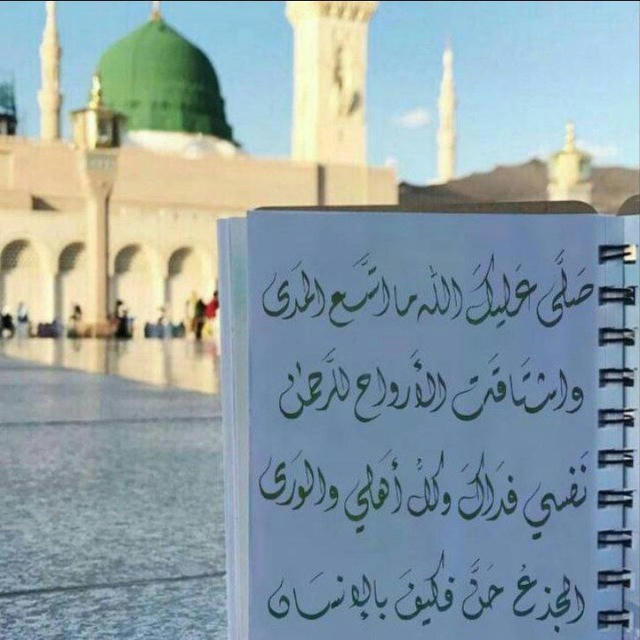 صَلَّى عَلَيكَ اللّٰه ما اتَّسَع المَدى
واشتَاقَت الأَرواح للرَّحمٰن
نَفسي فدَاكَ وكلّ أَهلي والوَرى
الجِذعُ حَنَّ فكَيفَ بالإنسَان